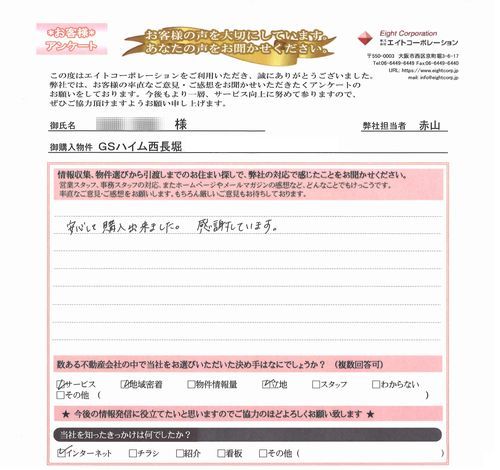 *お客様*
アンケート
お客様の声を大切にしています。
あなたの声をお聞かせください。
Eight Corporation
株式会社エイトコーポレーション
〒550-0003 大阪市西区京町堀3-6-17
Tel:06-6449-6440 Fax:06-6449-6440
URL: https://www.eightcorp.jp
mail: info@eightcorp.jp
この度はエイトコーポレーションをご利用いただき、誠にありがとうございました。
弊社では、お客様の率直なご意見・ご感想をお聞かせいただきたくアンケートの
お願いをしております。今後もより一層、サービス向上に努めて参りますので、
ぜひご協力頂けますようお願い申し上げます。
御氏名 様 弊社担当者 赤山
御購入物件 GSハイム西長堀
情報収集、物件選びから引渡しまでのお住まい探しで、弊社の対応で感じたことをお聞かせください。
営業スタッフ、事務スタッフの対応、またホームページやメールマガジンの感想など、どんなことでもけっこうです。
率直なご意見・ご感想をお願いします。もちろん厳しいご意見もお待ちしております。
安心して購入出来ました。 感謝しています。
数ある不動産会社の中で当社をお選びいただいた決め手はなにでしょうか？ （複数回答可）
☑サービス ☑地域密着 □物件情報量 ☑立地 □スタッフ □わからない
□その他 （ ）
★ 今後の情報発信に役立てたいと思いますのでご協力のほどよろしくお願い致します ★
当社を知ったきっかけは何でしたか？
☑インターネット □チラシ □紹介 □看板 □その他 （ ）